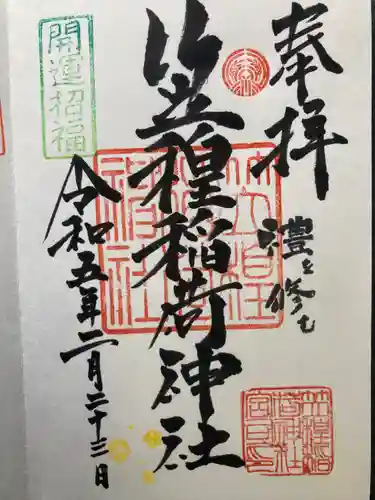 奉拝
禮を修む
笠䅣稲荷神社
令和五年二月二十三日
開運招福